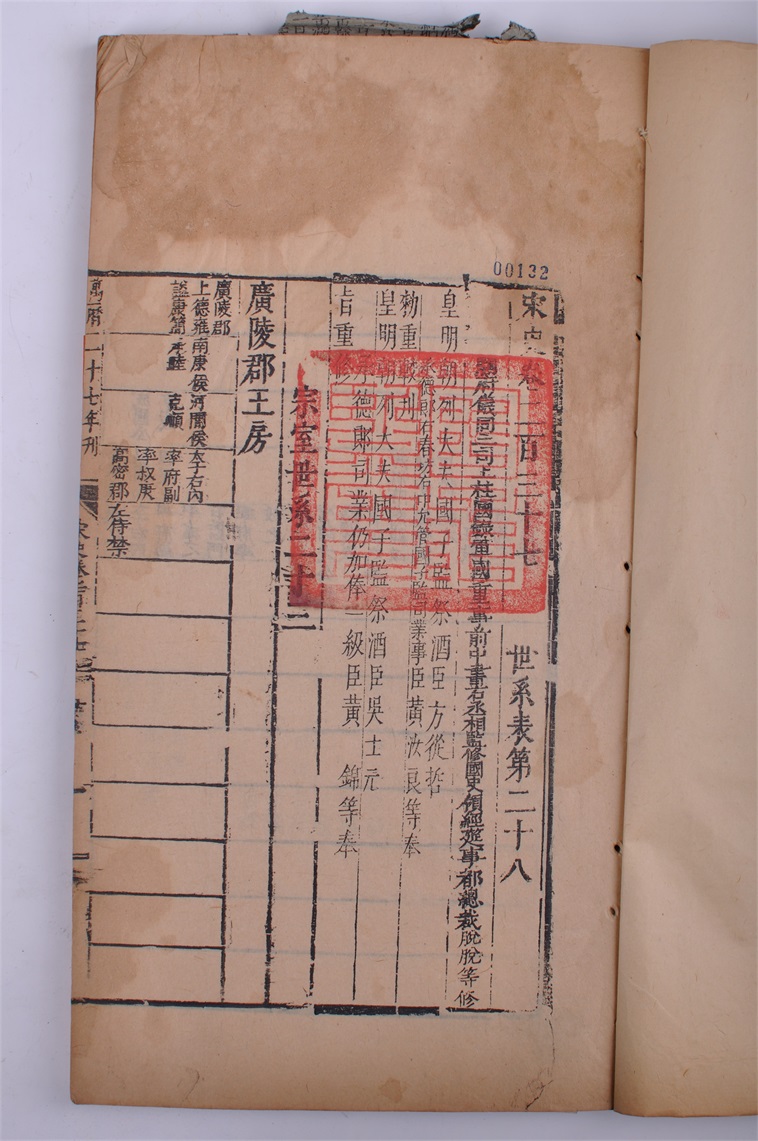 00132
宋史卷二百三十七 世系表第二十八
開府儀同三司上柱國錄軍國重事前中書右丞相監修國史領經筵事都總裁脫脫等修
皇明朝列大夫國子監祭酒臣方從哲
承德郎右春坊右中允管國子監司業事臣黃汝良等奉
勅重較刊
皇明朝列大夫國子監祭酒臣吳士元
承德郎司業仍加俸一級臣黃 錦等奉
旨重修
宗室世系二十三
廣陵郡王房
廣陵郡
王德雍南康侯河間侯太子右內
諡康簡承睦 克順 率府副
率叔庚
高密郡左侍禁
萬曆二十七年刊